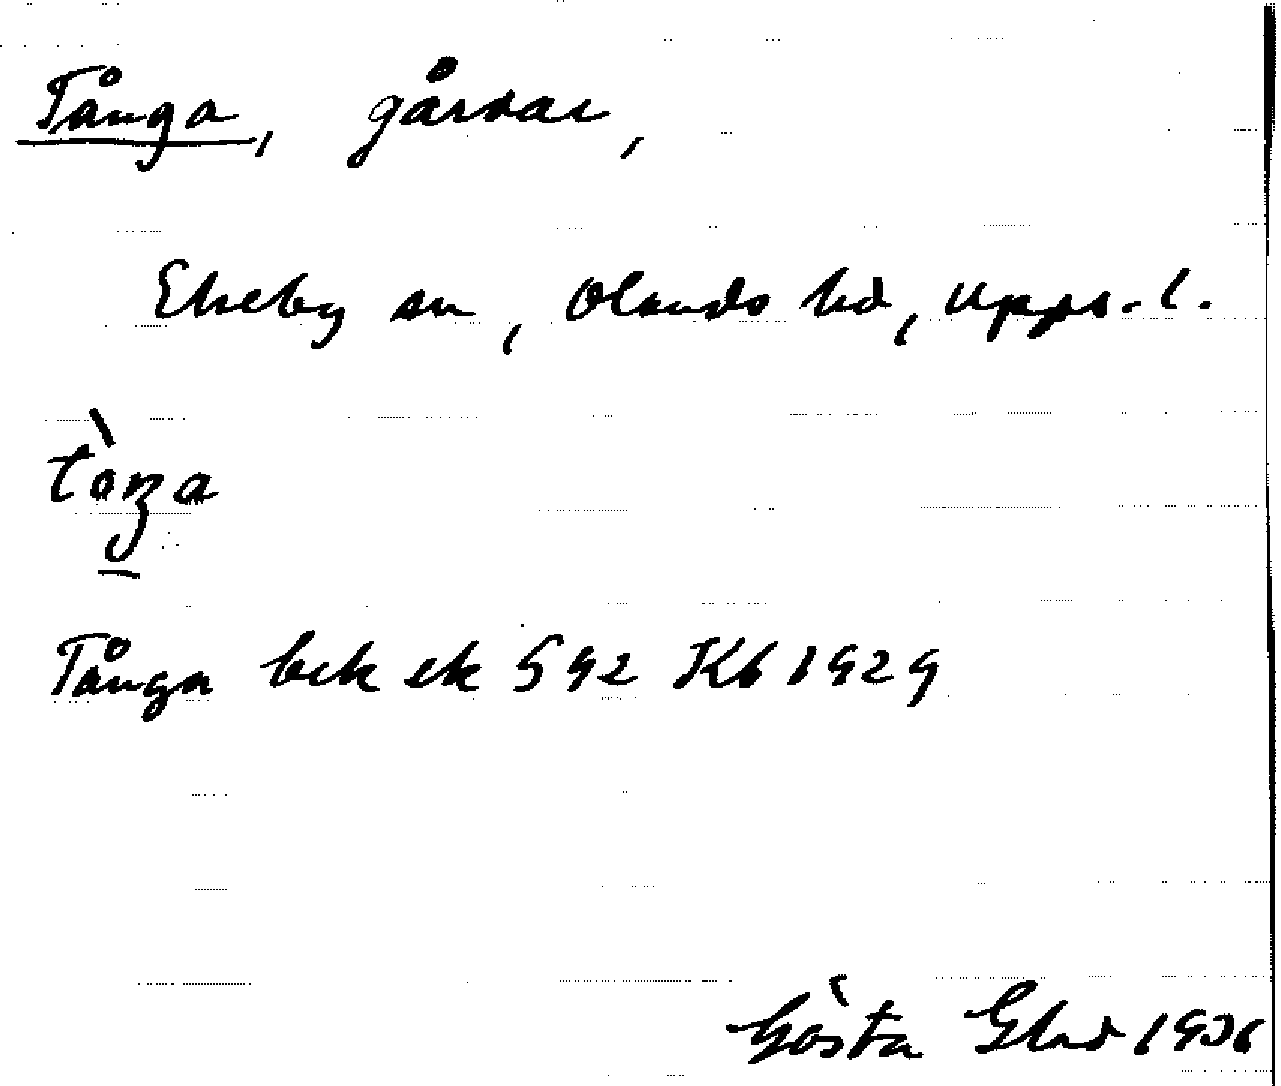 Tånga, gårdar,
Ekeby sn, Olands hd, Upps. l.
tòŋa
Tånga bek ek 592 Kb 1929
Gösta Glad 1936